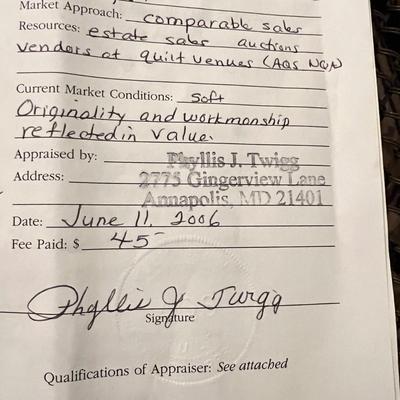 Market Approach: comparable sales
Resources: estate sales auctions
vendors at quilt venues (AQS NQA)
Current Market Conditions: soft
Originality and workmanship
reflected in value.
Appraised by: Phyllis J. Twigg
Address: 2775 Gingerview Lane
Annapolis, MD 21401
Date: June 11, 2006
Fee Paid: $ 45
Phyllis J Twigg
Signature
Qualifications of Appraiser: See attached